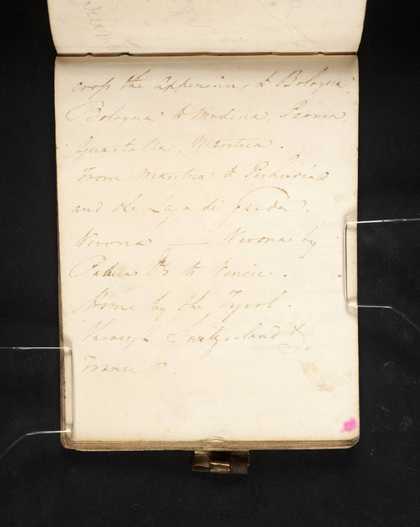 cross the Appenines to Bologna
Bologna to Modena Parma
Guastalla Mantua.
From Mantua to
and the Lago di Garda.
Verona — Verona by
to Venice.
Home by the Tyrol
through Switzerland &
France